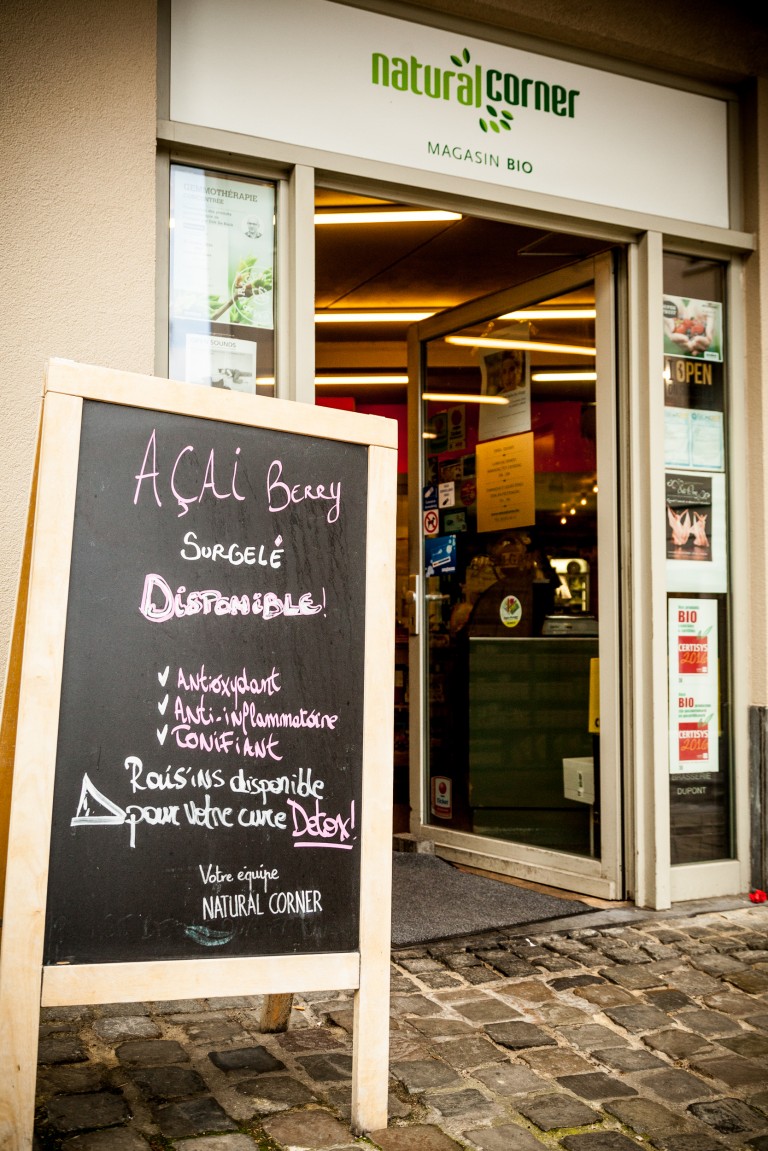 naturalcorner
MAGASIN BIO
GEMMOTHÉRAPIE
OPEN
AÇAi Berry
SURGELÉ
DiSPONiBLE!
✓ Antioxydant
✓ Anti-inflammatoire
✓ TONiFiANT
Raisins disponible
pour votre cure Detox!
Votre équipe
NATURAL CORNER
BIO
CERTISYS
2016
BIO
CERTISYS
2016
BRASSERIE
DUPONT